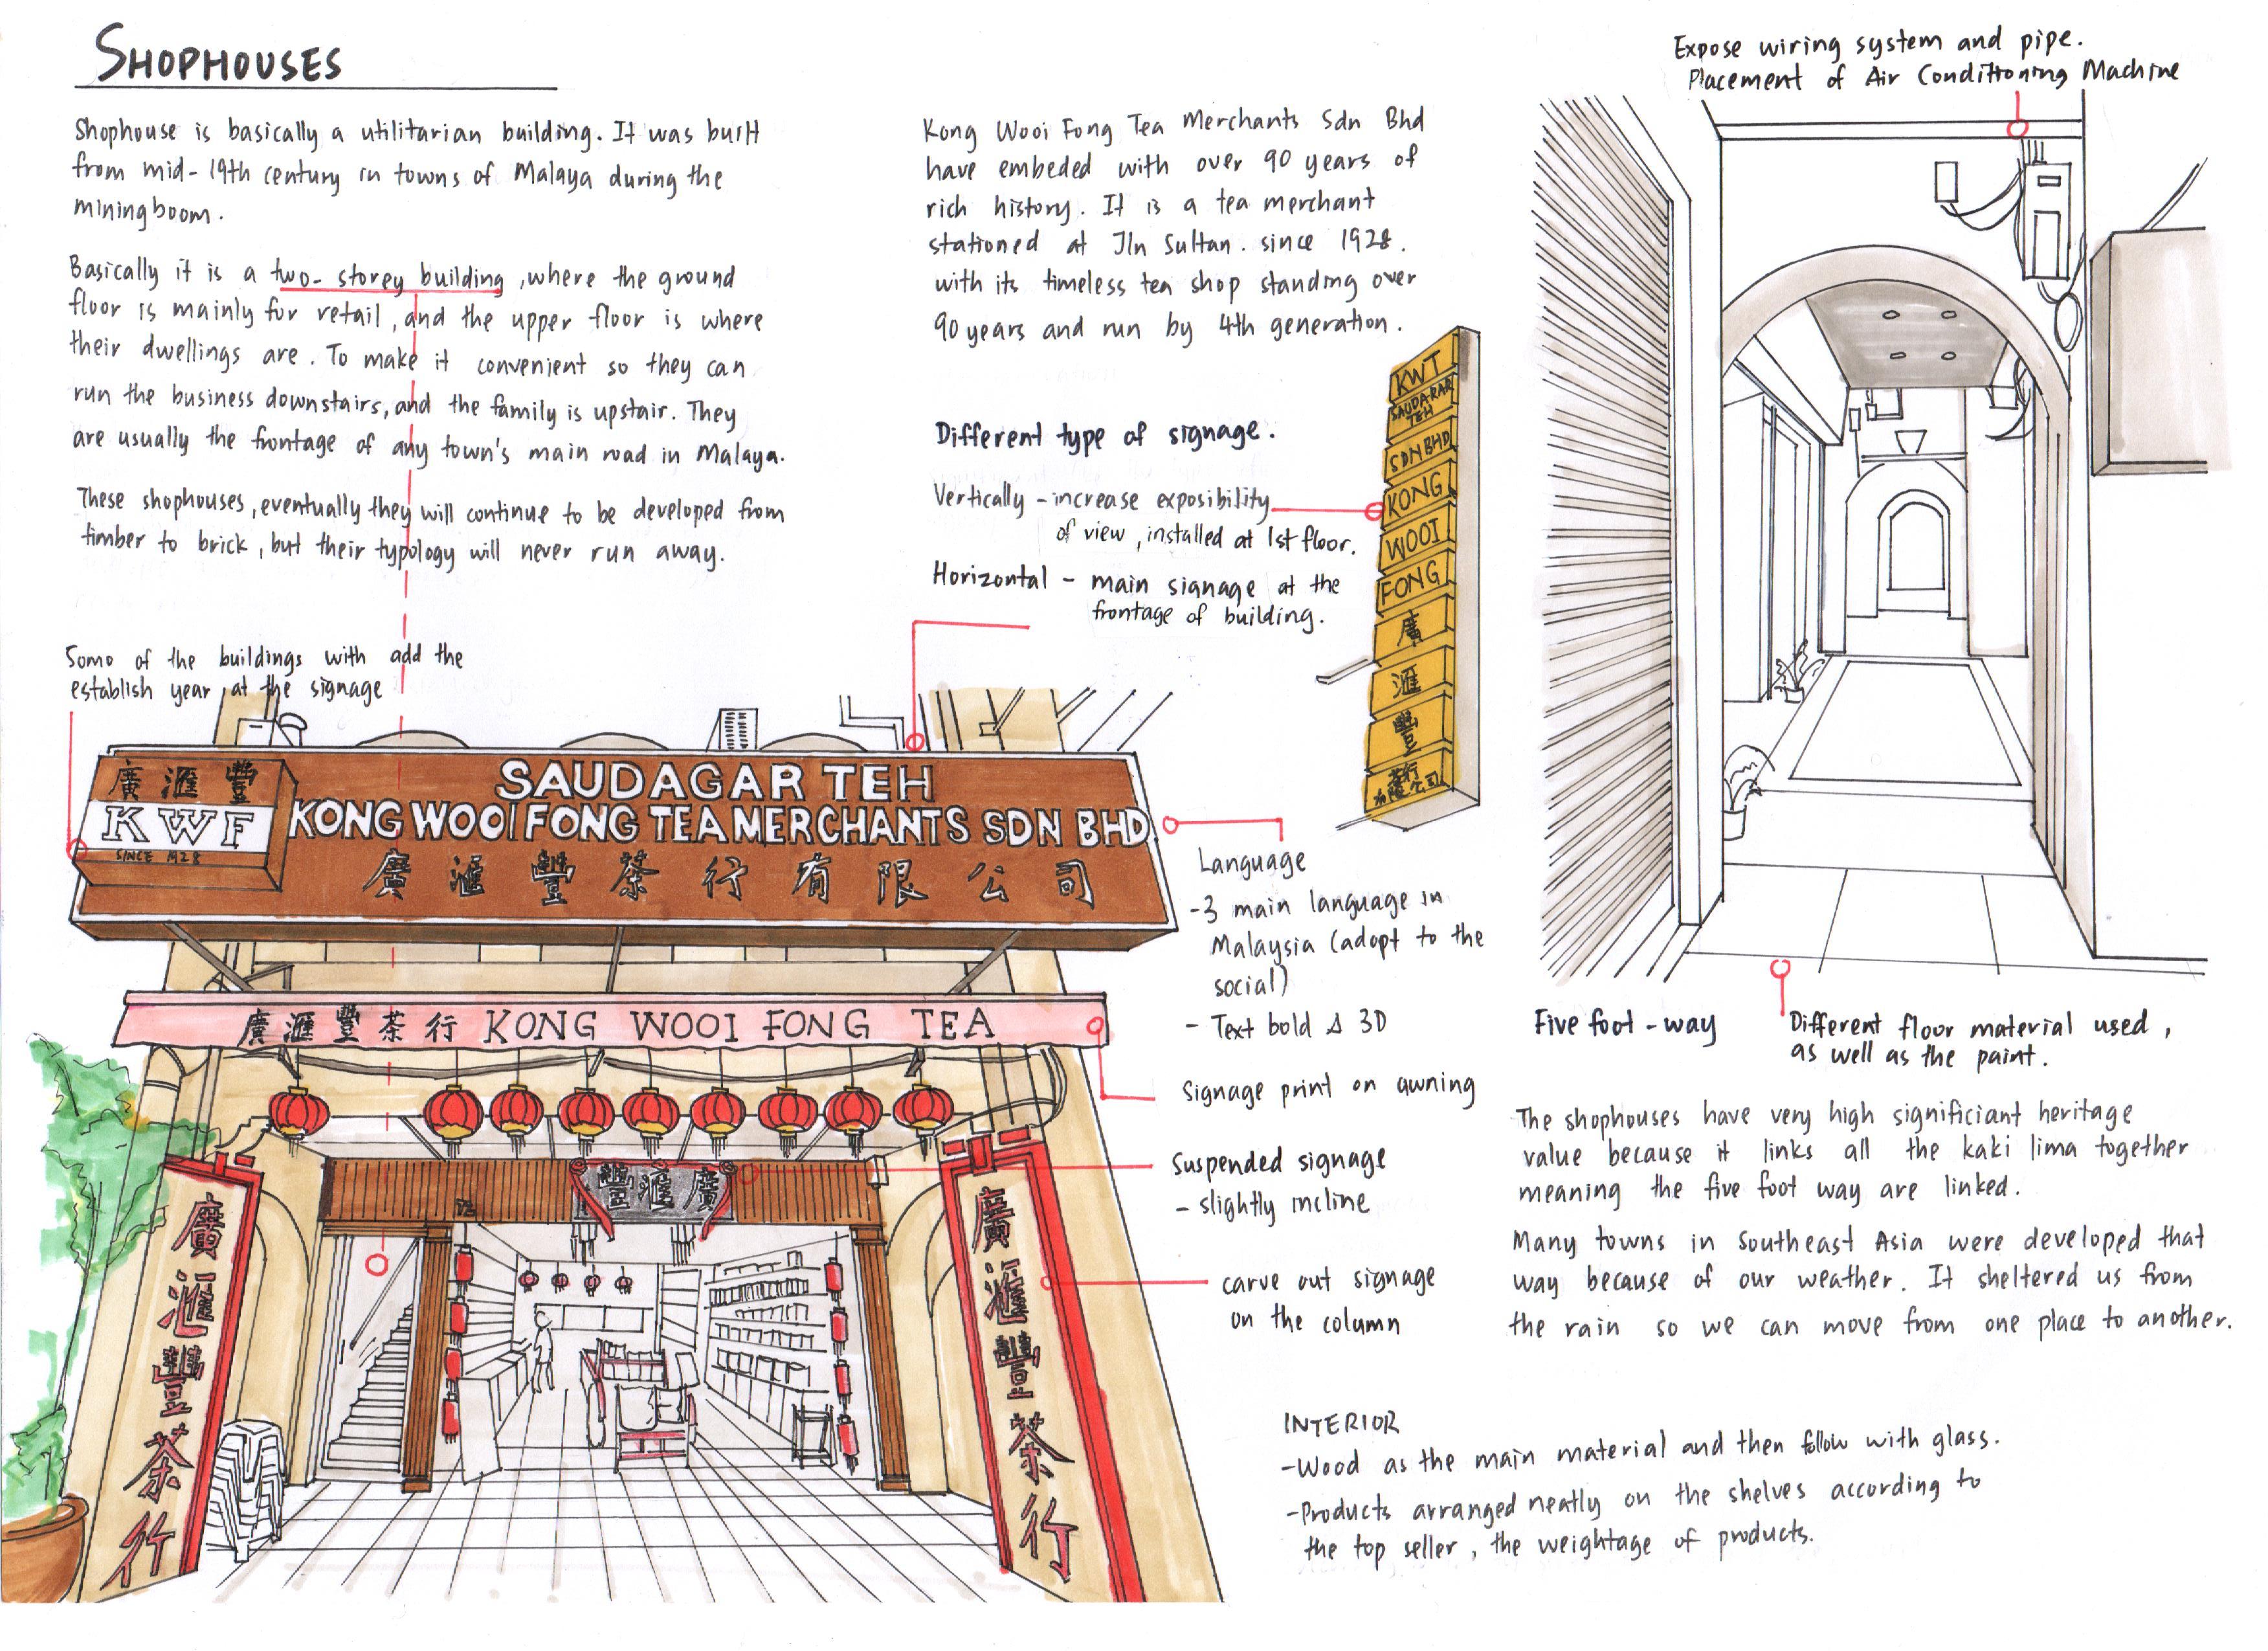 SHOPHOUSES
Shophouse is basically a utilitarian building. It was built
from mid-19th century in towns of Malaya during the
mining boom.
Basically it is a two-storey building, where the ground
floor is mainly for retail, and the upper floor is where
their dwellings are. To make it convenient so they can
run the business downstairs, and the family is upstair. They
are usually the frontage of any town's main road in Malaya.
These shophouses, eventually they will continue to be developed from
timber to brick, but their typology will never run away.
Some of the buildings with add the
establish year at the signage
Kong Wooi Fong Tea Merchants Sdn Bhd
have embeded with over 90 years of
rich history. It is a tea merchant
stationed at Jln Sultan. since 1928.
with its timeless tea shop standing over
90 years and run by 4th generation.
Different type of signage.
Vertically - increase exposibility
of view, installed at 1st floor.
Horizontal - main signage at the
frontage of building.
KWT
SAUDARAR
TEH
SDN BHD
KONG
WOOI
FONG
廣
滙
豐
茶行
有限公司
廣滙豐
KWF
SINCE 1928
SAUDAGAR TEH
KONG WOOI FONG TEA MERCHANTS SDN BHD
廣滙豐茶行有限公司
廣滙豐茶行 KONG WOOI FONG TEA
豐滙廣
廣滙豐茶行
廣滙豐茶行
Language
-3 main language in
Malaysia (adopt to the
social)
- Text bold & 3D
Signage print on awning
Suspended signage
- slightly incline
carve out signage
on the column
Expose wiring system and pipe.
Placement of Air Conditioning Machine
Five foot-way
Different floor material used,
as well as the paint.
The shophouses have very high significiant heritage
value because it links all the kaki lima together
meaning the five foot way are linked.
Many towns in Southeast Asia were developed that
way because of our weather. It sheltered us from
the rain so we can move from one place to another.
INTERIOR
-Wood as the main material and then follow with glass.
-Products arranged neatly on the shelves according to
the top seller, the weightage of products.